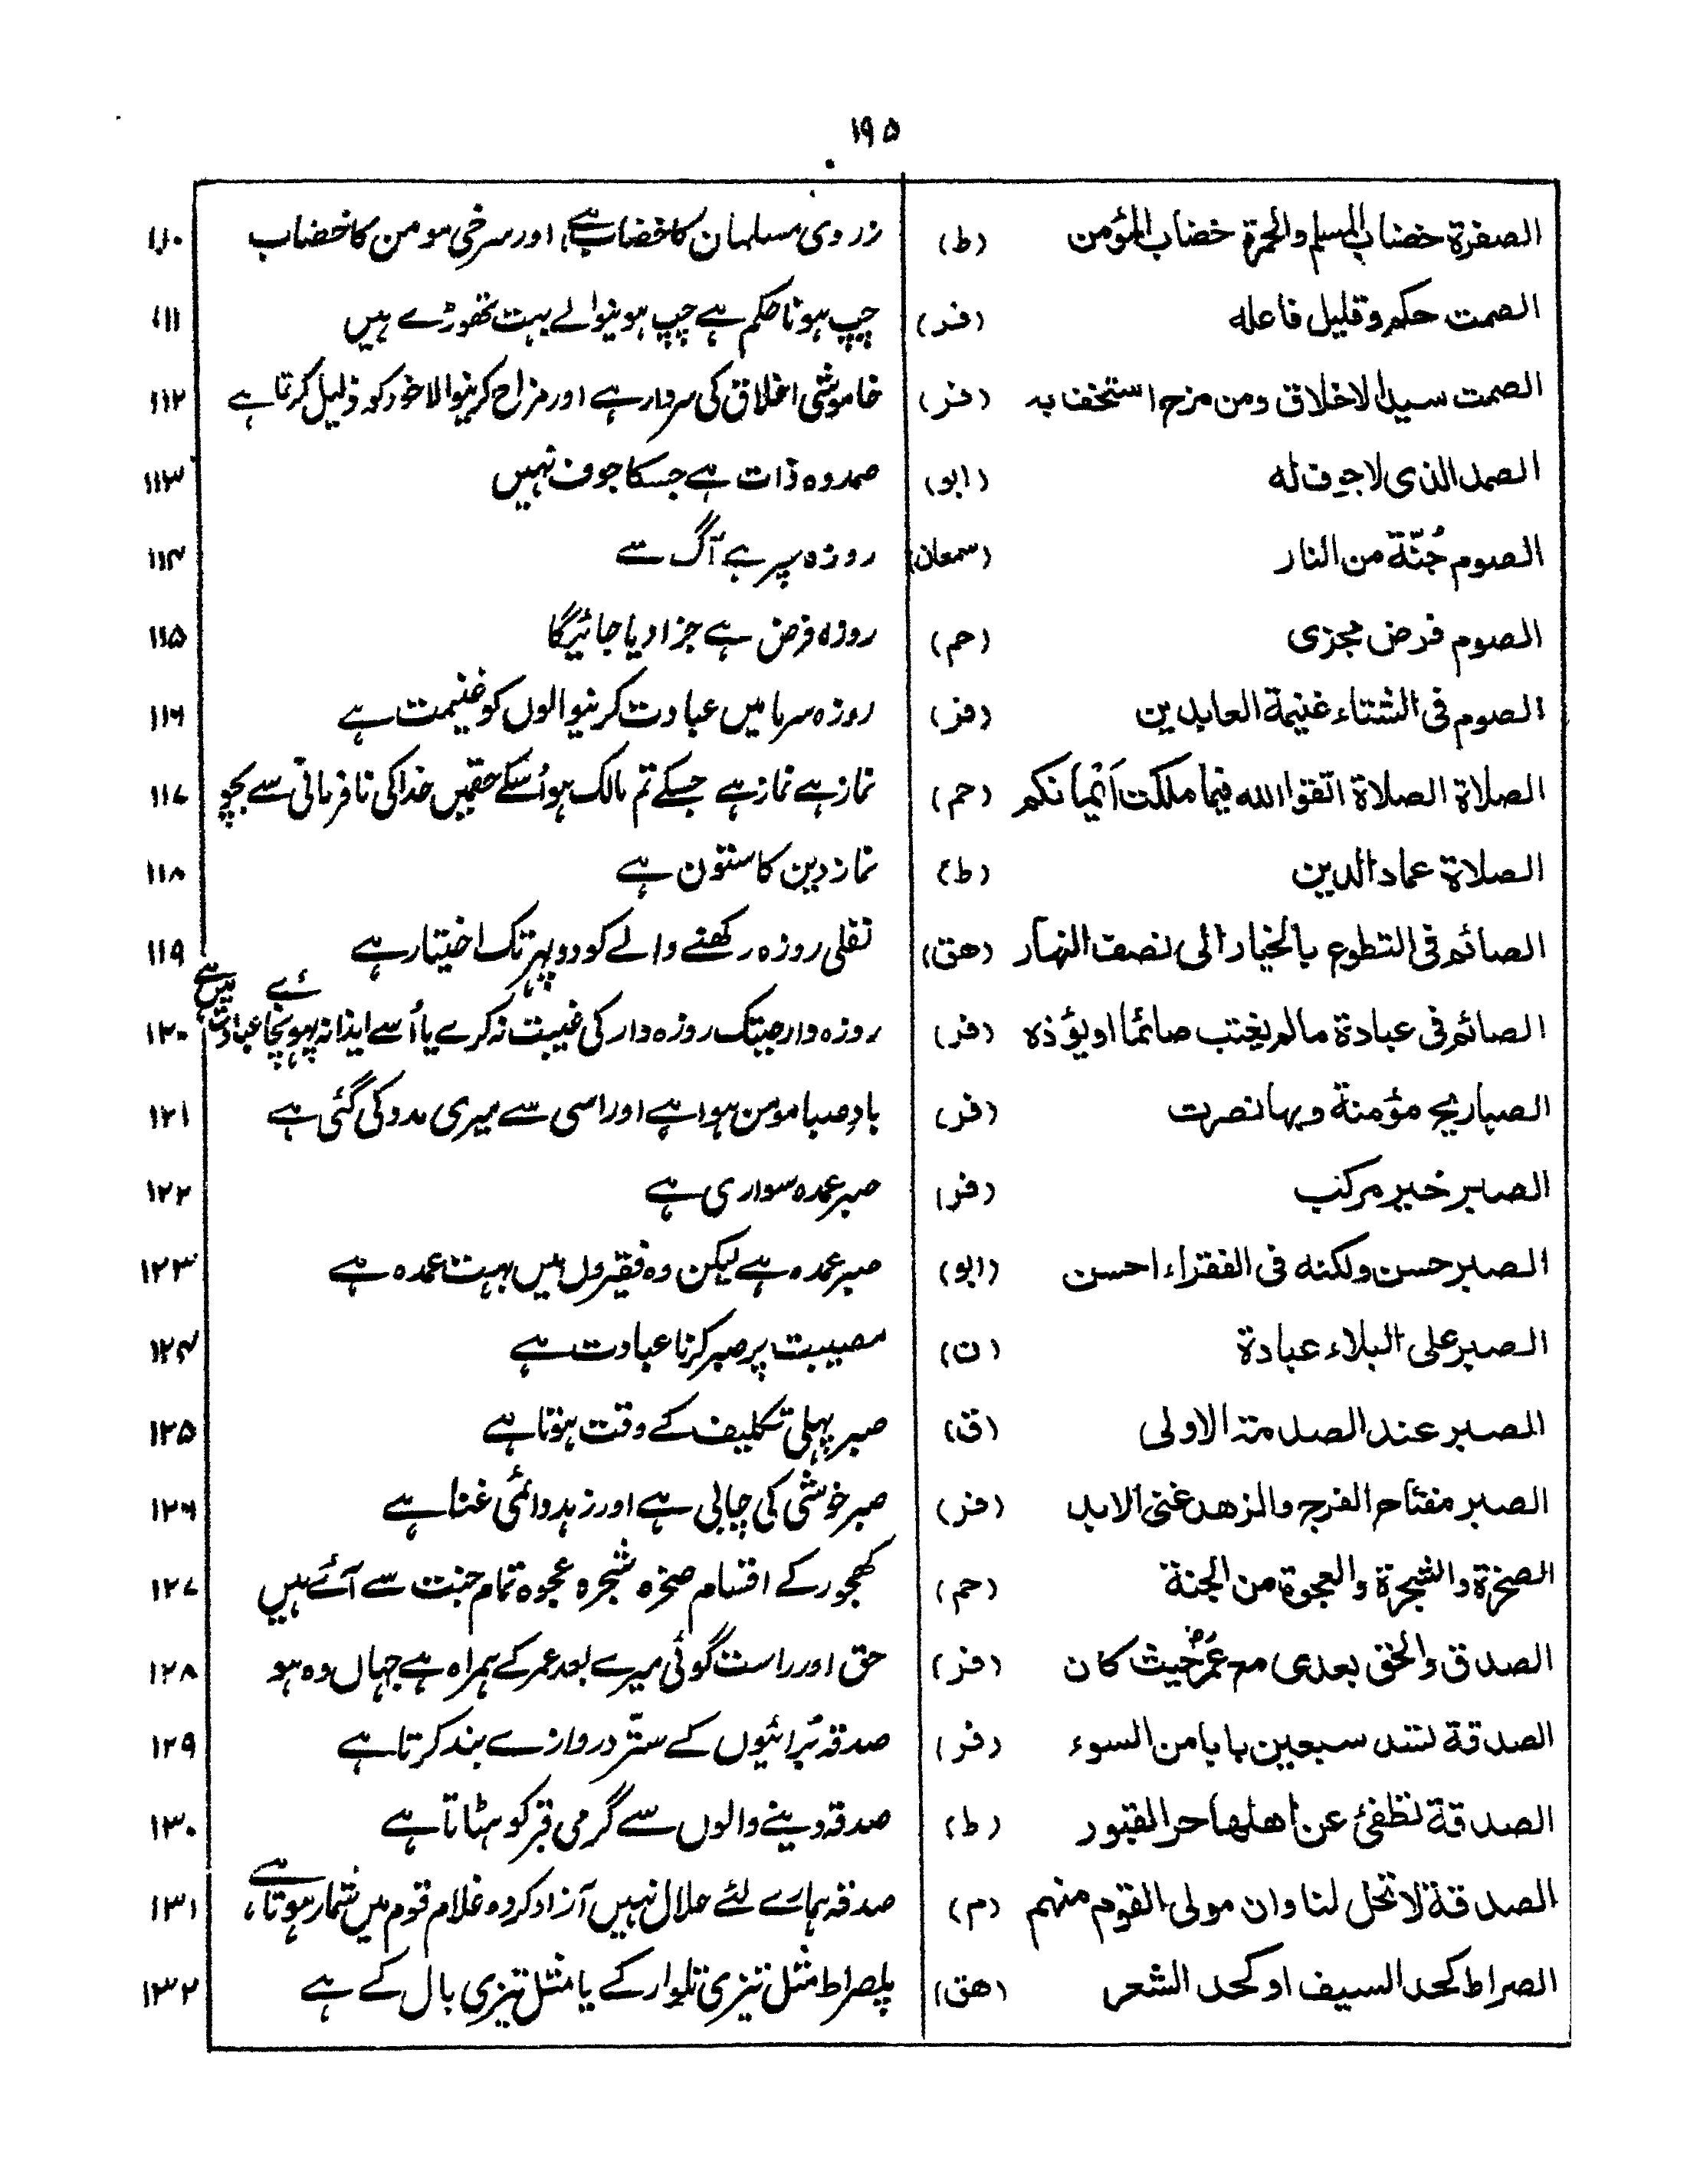 ۱۹۵
الصفرة خضاب المسلم والحمرة خضاب المؤمن (ط) زردی مسلمان کا خضاب ہے، اور سرخی مومن کا خضاب ۱۱۰
الصمت حکم وقلیل فاعله (فر) چپ ہونا حکم ہے چپ ہونیوالے بہت تھوڑے ہیں ۱۱۱
الصمت سید الاخلاق ومن مزح استخف به (فر) خاموشی اخلاق کی سردار ہے اور مزاح کرنیوالا خود کو ذلیل کرتا ہے ۱۱۲
الصمد الذی لا جوف له (ابو) صمد وہ ذات ہے جسکا جوف نہیں ۱۱۳
الصوم جُنّة من النار (سمعان) روزہ سپر ہے آگ سے ۱۱۴
الصوم فرض مجزی (حم) روزہ فرض ہے جزا دیا جائیگا ۱۱۵
الصوم فی الشتاء غنیمة العابدین (فر) روزہ سرما میں عبادت کرنیوالوں کو غنیمت ہے ۱۱۶
الصلاة الصلاة اتقوا الله فیما ملکت اَیْمانکم (حم) نماز ہے نماز ہے جسکے تم مالک ہو اُسکے حقمیں خدا کی نافرمانی سے بچو ۱۱۷
الصلاة عماد الدین (ط) نماز دین کا ستون ہے ۱۱۸
الصائم فی التطوع بالخیار الی نصف النهار (هق) نفلی روزہ رکھنے والے کو دوپہر تک اختیار ہے ۱۱۹
الصائم فی عبادة مالم یغتب صائما او یؤذه (فر) روزہ دار جبتک روزہ دار کی غیبت نہ کرے یا اُسے ایذا نہ پہونچائے عبادت میں ہے ۱۲۰
الصباریح مؤمنة وبها نصرت (فر) بادِ صبا مومن ہوا ہے اور اسی سے میری مدد کی گئی ہے ۱۲۱
الصبر خیر مرکب (فر) صبر عمدہ سواری ہے ۱۲۲
الصبر حسن ولکنه فی الفقراء احسن (ابو) صبر عمدہ ہے لیکن وہ فقیروں میں بہت عمدہ ہے ۱۲۳
الصبر علی البلاء عبادة (ن) مصیبت پر صبر کرنا عبادت ہے ۱۲۴
الصبر عند الصدمة الاولی (ق) صبر پہلی تکلیف کے وقت ہوتا ہے ۱۲۵
الصبر مفتاح الفرج والزهد غنی الابد (فر) صبر خوشی کی چابی ہے اور زہد دائمی غنا ہے ۱۲۶
الصخرة والشجرة والعجوة من الجنة (حم) کھجور کے اقسام صخرہ شجرہ عجوہ تمام جنت سے آئے ہیں ۱۲۷
الصدق والحق بعدی مع عُمَرؓ حیث کان (فر) حق اور راست گوئی میرے بعد عمر کے ہمراہ ہے جہاں وہ ہو ۱۲۸
الصدقة لتسد سبعین بابا من السوء (فر) صدقہ بُرائیوں کے ستّر دروازے بند کرتا ہے ۱۲۹
الصدقة تطفئ عن اهلها حر القبور (ط) صدقہ دینے والوں سے گرمی قبر کو ہٹاتا ہے ۱۳۰
الصدقة لا تحل لنا وان مولی القوم منهم (م) صدقہ ہمارے لئے حلال نہیں آزاد کردہ غلام قوم میں شمار ہوتا ہے، ۱۳۱
الصراط کحد السیف او کحد الشعر (هق) پلصراط مثل تیزی تلوار کے یا مثل تیزی بال کے ہے ۱۳۲